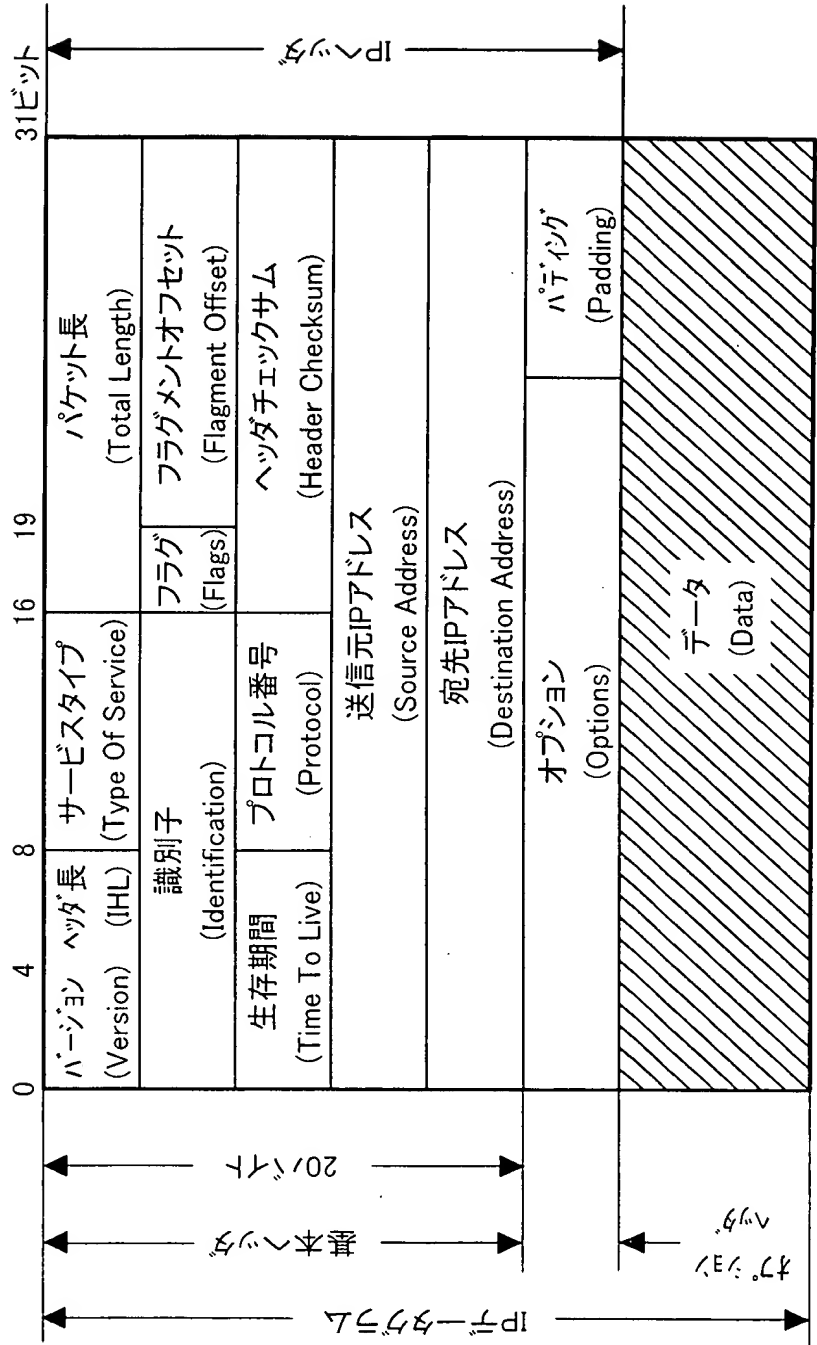 0
4
8
16
19
31ビット
バージョン ヘッダ長
(Version) (IHL)
サービスタイプ
(Type Of Service)
パケット長
(Total Length)
識別子
(Identification)
フラグ
(Flags)
フラグメントオフセット
(Flagment Offset)
生存期間
(Time To Live)
プロトコル番号
(Protocol)
ヘッダチェックサム
(Header Checksum)
送信元IPアドレス
(Source Address)
宛先IPアドレス
(Destination Address)
オプション
(Options)
パディング
(Padding)
データ
(Data)
IPヘッダ
20バイト
基本ヘッダ
オプション
ヘッダ
IPデータグラム